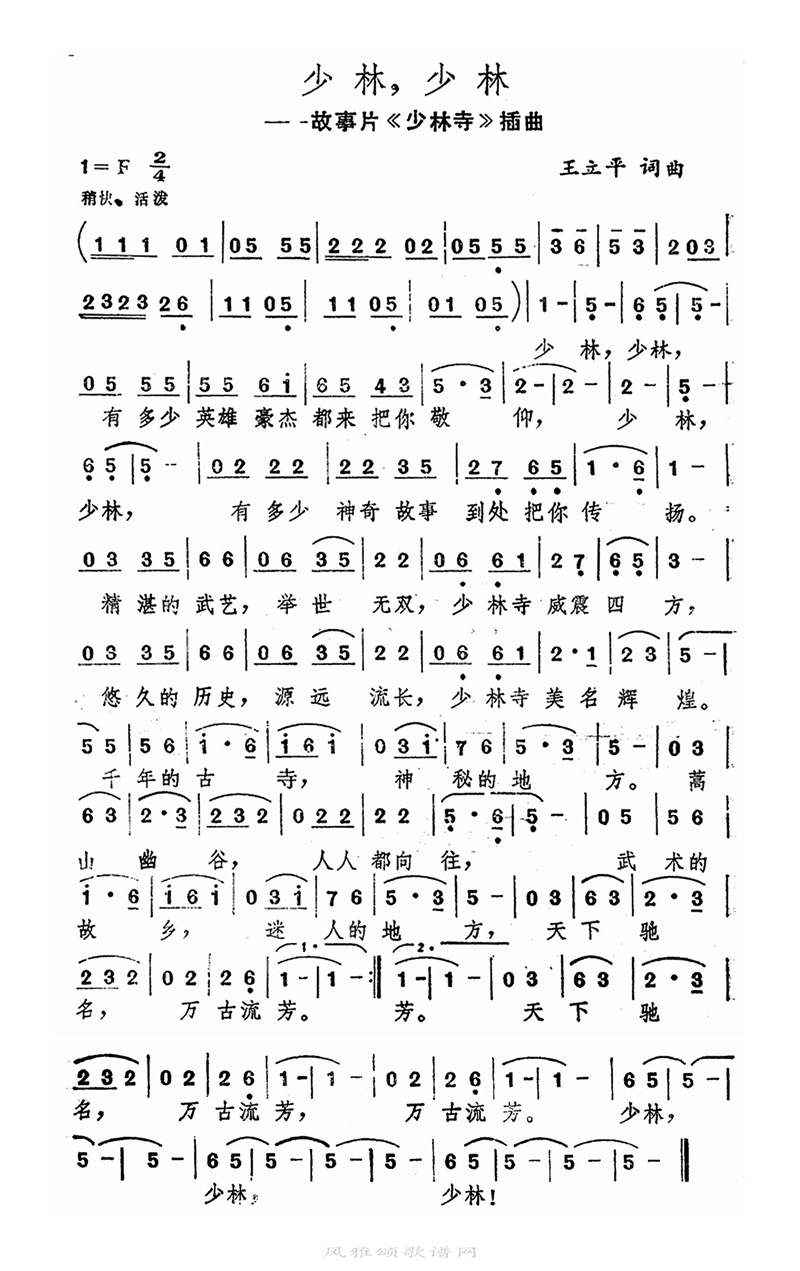 少林，少林
——故事片《少林寺》插曲
1=F 2/4
王立平 词曲
稍快、活泼
(1 1 1 0 1 | 0 5 5 5 | 2 2 2 0 2 | 0 5 5 5 | 3 6 | 5 3 | 2 0 3 |
2 3 2 3 2 6 | 1 1 0 5 | 1 1 0 5 | 0 1 0 5 ) | 1 - | 5 - | 6 5 | 5 - |
少 林，少林，
0 5 5 5 | 5 5 6 i | 6 5 4 3 | 5 · 3 | 2 - | 2 - | 2 - | 5 - |
有多少 英雄 豪杰 都来 把你 敬 仰， 少 林，
6 5 | 5 - | 0 2 2 2 | 2 2 3 5 | 2 7 6 5 | 1 · 6 | 1 - |
少林， 有多少 神奇 故事 到处 把你 传 扬。
0 3 3 5 | 6 6 | 0 6 3 5 | 2 2 | 0 6 6 1 | 2 7 | 6 5 | 3 - |
精湛的 武艺，举世 无双，少林寺 威震 四 方，
0 3 3 5 | 6 6 | 0 6 3 5 | 2 2 | 0 6 6 1 | 2 · 1 | 2 3 | 5 - |
悠久的 历史，源远 流长，少林寺 美名 辉 煌。
5 5 | 5 6 | i · 6 | i 6 i | 0 3 i | 7 6 | 5 · 3 | 5 - | 0 3 |
千年的古 寺， 神 秘的地 方。嵩
6 3 | 2 · 3 | 2 3 2 | 0 2 2 2 | 2 2 | 5 · 6 | 5 - | 0 5 | 5 6 |
山 幽 谷， 人人 都向 往， 武 术的
i · 6 | i 6 i | 0 3 i | 7 6 | 5 · 3 | 5 - | 0 3 | 6 3 | 2 · 3 |
故 乡， 迷 人的地 方，天下 驰
1· 2·
2 3 2 | 0 2 | 2 6 | 1 - | 1 - :‖ 1 - | 1 - | 0 3 | 6 3 | 2 · 3 |
名， 万 古流芳。 芳。 天 下 驰
2 3 2 | 0 2 | 2 6 | 1 - | 1 - | 0 2 | 2 6 | 1 - | 1 - | 6 5 | 5 - |
名， 万 古流芳， 万 古流芳。 少林，
5 - | 5 - | 6 5 | 5 - | 5 - | 5 - | 6 5 | 5 - | 5 - | 5 - ‖
少林， 少林！
风雅颂歌谱网